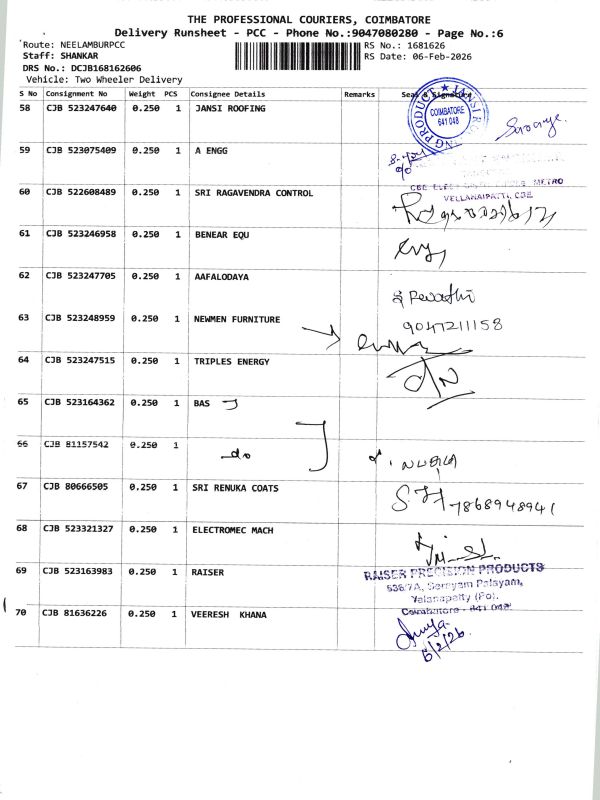 THE PROFESSIONAL COURIERS, COIMBATORE
Delivery Runsheet - PCC - Phone No.:9047080280 - Page No.:6
Route: NEELAMBURPCC RS No.: 1681626
Staff: SHANKAR RS Date: 06-Feb-2026
DRS No.: DCJB168162606
Vehicle: Two Wheeler Delivery
S No Consignment No Weight PCS Consignee Details Remarks Seal & Signature
58 CJB 523247640 0.250 1 JANSI ROOFING
COIMBATORE
641 048
59 CJB 523075409 0.250 1 A ENGG
METRO
60 CJB 522608489 0.250 1 SRI RAGAVENDRA CONTROL
VELLANAIPATTI, CBE
61 CJB 523246958 0.250 1 BENEAR EQU
62 CJB 523247705 0.250 1 AAFALODAYA
Revathi
63 CJB 523248959 0.250 1 NEWMEN FURNITURE
9047211158
64 CJB 523247515 0.250 1 TRIPLES ENERGY
65 CJB 523164362 0.250 1 BAS
66 CJB 81157542 0.250 1
do
67 CJB 80666505 0.250 1 SRI RENUKA COATS
7868948941
68 CJB 523321327 0.250 1 ELECTROMEC MACH
69 CJB 523163983 0.250 1 RAISER
RAISER PRECISION PRODUCTS
536/7A, Serayam Palayam,
Valanapatty (Po),
Coimbatore - 641 048
70 CJB 81636226 0.250 1 VEERESH KHANA
6/2/26